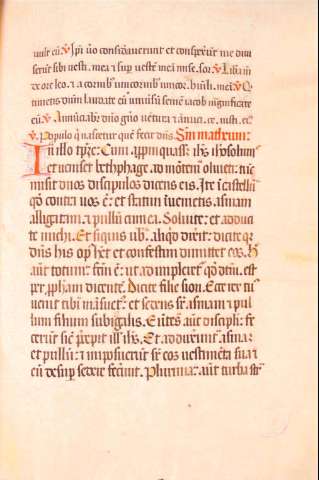 uult eū. V Ip̄i u̓o considauerunt et conspexerūt me diui
serūt sibi uesti. mea ⁊ sup̄ uestē meā mise. sor. V Libām
ex ore leo. ⁊ a cornib; unicornuū. humili. meā. V Q
timetis dn̄m laudate eū uniūsū semē iacob magnificate
eū. V Annūciabr̄ dn̄o gn̄o uētura ⁊ annūc. ce. iust. ei.
V Populo q̄ nascetur quē fecit dn̄s. Scdm matheum:
In illo tp̄re: Cum appinquass; ih̄s ih̓osolimis
et uenisset bethphage ad montem oliueti: tūc
misit duos discipulos dicens eis. Ite ī castellū
q̄d contra uos ē: et statim īuenietis asinam
alligatam ⁊ pullū cum ea. Soluite: et addūci
te michi. Et siquis uob̓ aliq̄d dixerit: dicite q̄
dn̄s his op̄s h̓t et confestim dimittet eos. H
aūt totum factū ē: ut adimpleret̓ q̄d dc̄m est
per p̄ph̓am dicentē. Dicite filie sion. Ecce rex tu
uenit tibi māsuet;: et sedens sr̄ asinam ⁊ pul
lum filium subiugalis. Eūtes aūt discipl̓i: fe
cerūt sic̄ p̄cepit ill̓ ih̄s. Et adduxerūt asinā:
et pullū: ⁊ imposuerūt sr̄ eos uestimēta sua ⁊
eū desup̄ sedere fecerūt. Plurima aūt turba str̄